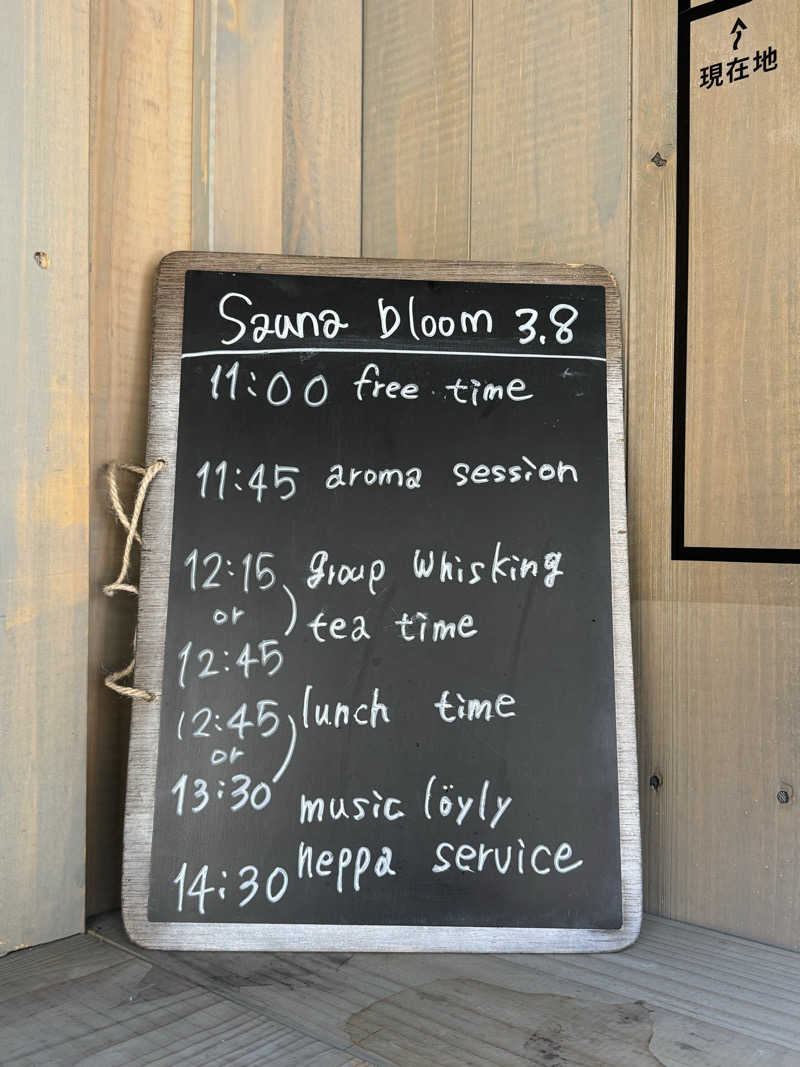 現在地
Sauna bloom 3.8
11:00 free time
11:45 aroma session
12:15 group whisking
or tea time
12:45
12:45 lunch time
or
13:30 music löyly
14:30 heppa service